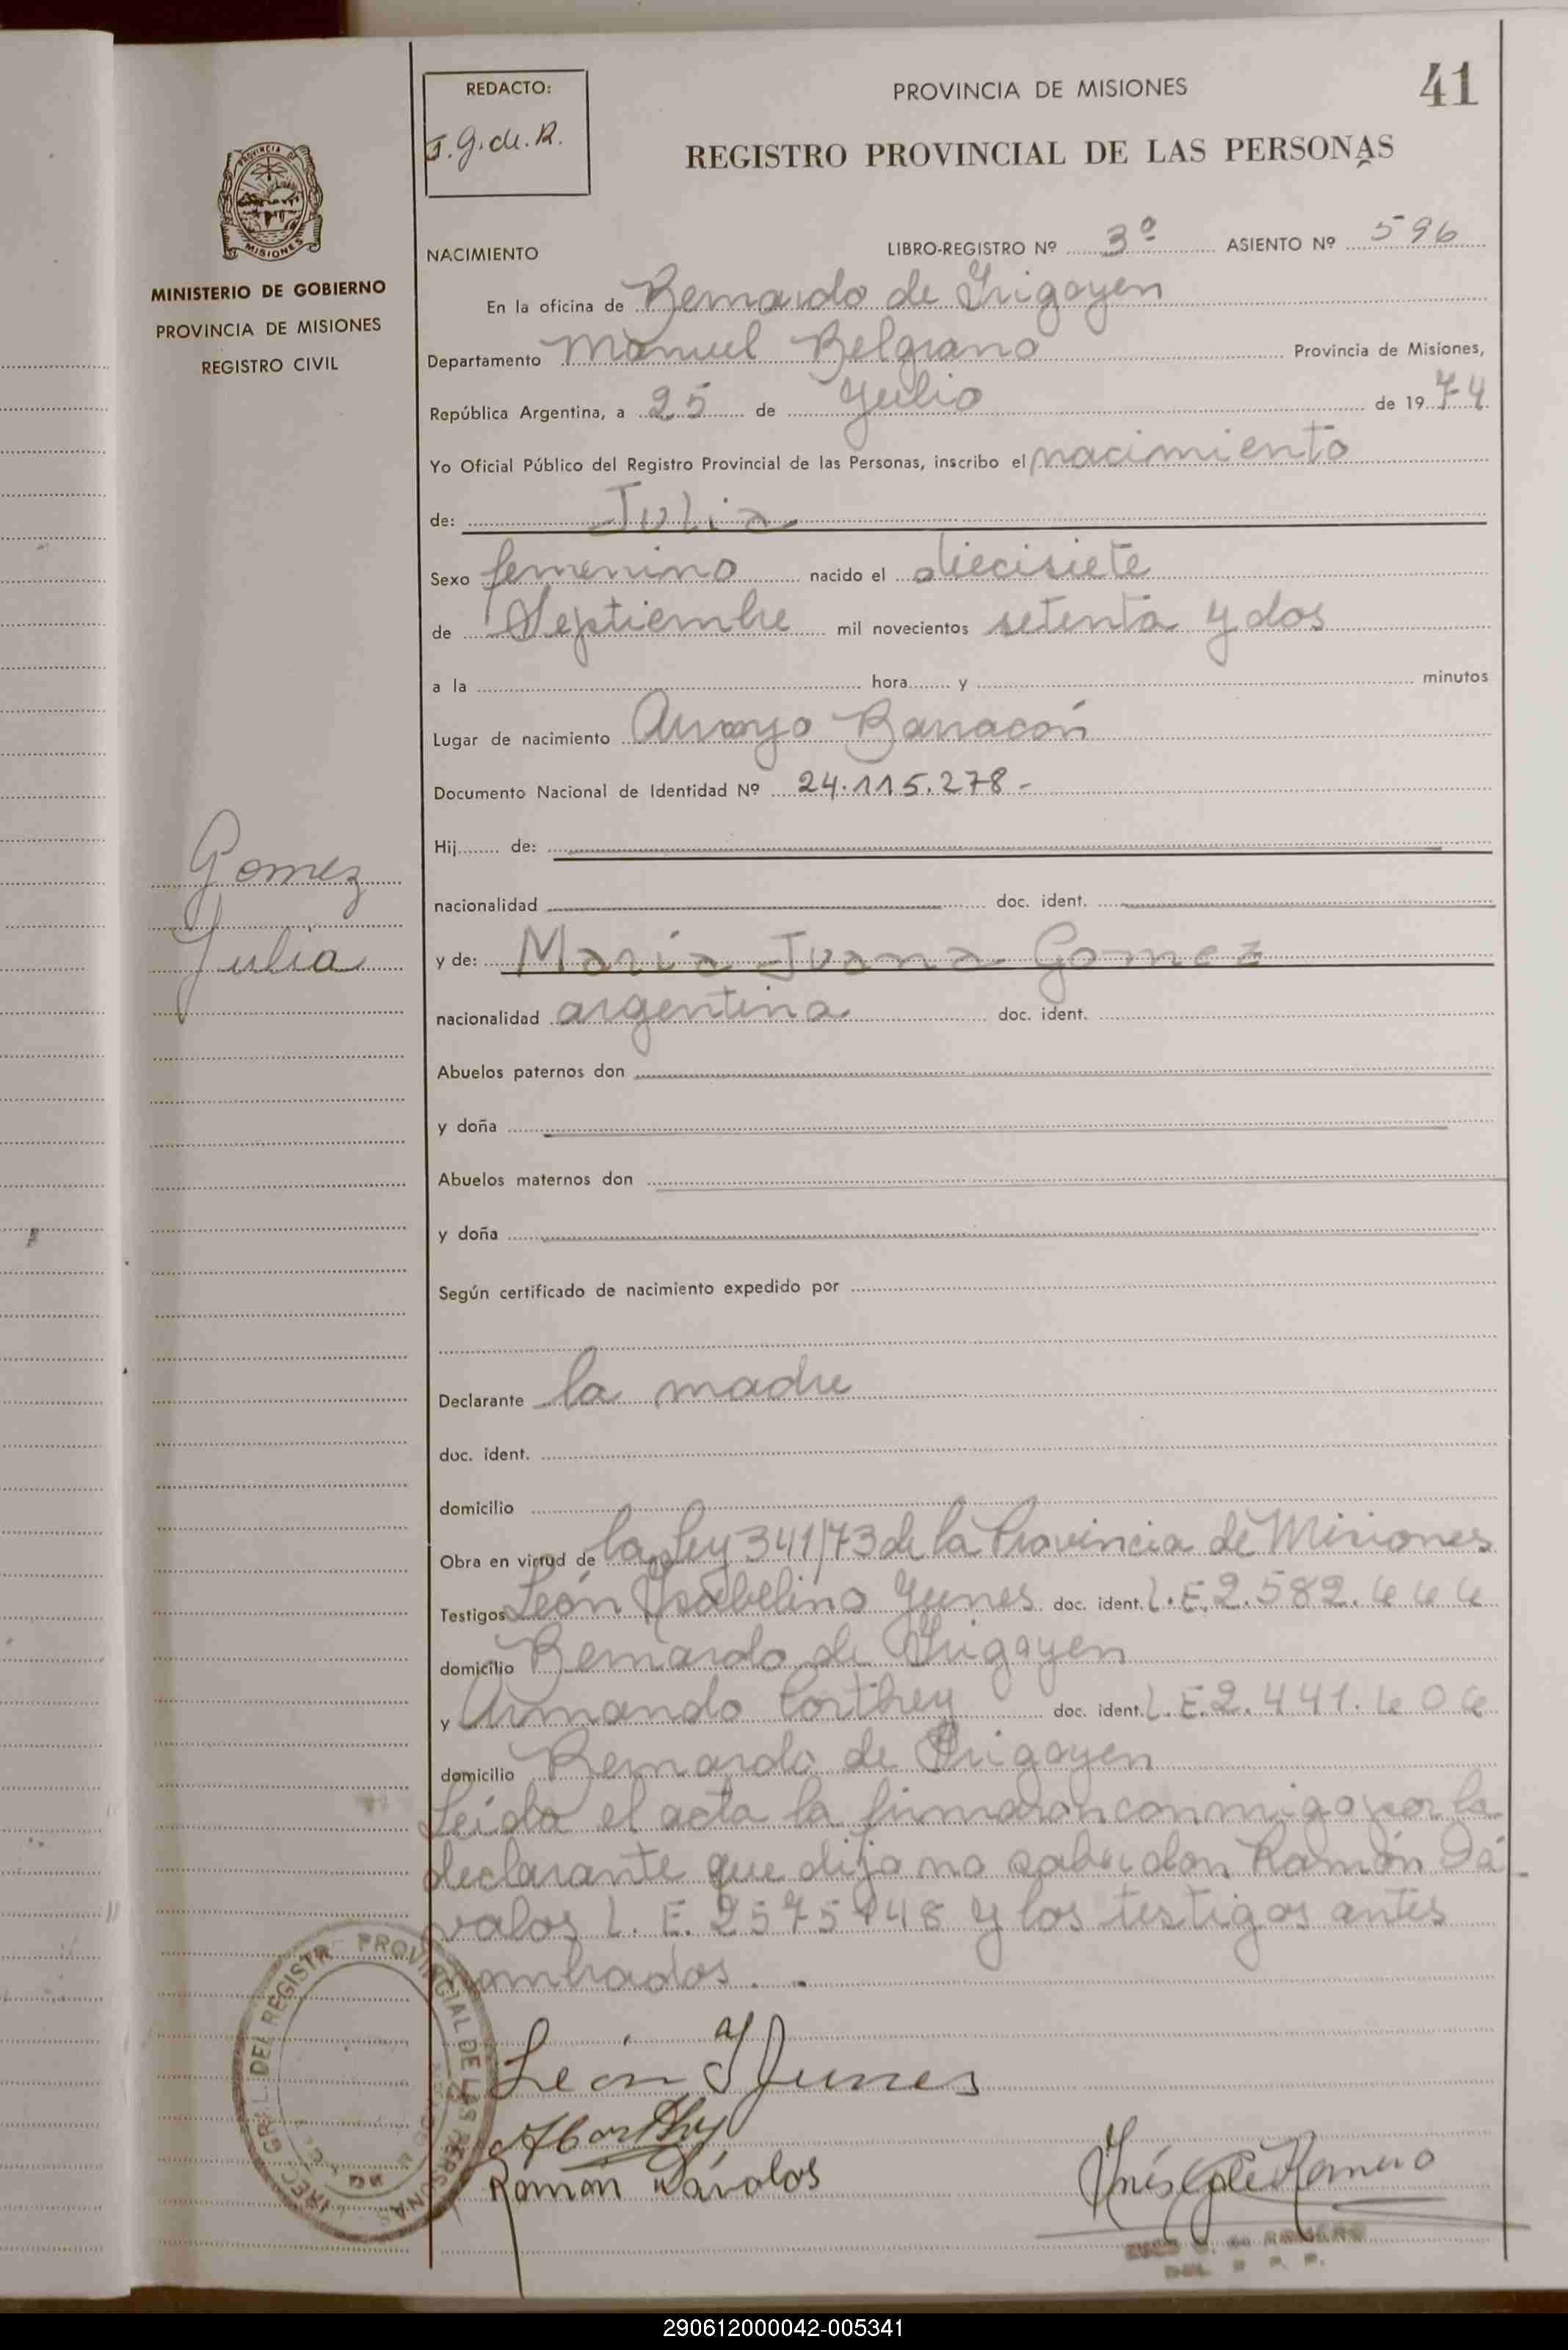 41
REDACTO:
J. G. de R.
PROVINCIA DE MISIONES
REGISTRO PROVINCIAL DE LAS PERSONAS
PROVINCIA DE
MISIONES
MINISTERIO DE GOBIERNO
PROVINCIA DE MISIONES
REGISTRO CIVIL
NACIMIENTO LIBRO-REGISTRO Nº 3º ASIENTO Nº 596
En la oficina de Bernardo de Irigoyen
Departamento Manuel Belgrano Provincia de Misiones,
República Argentina, a 25 de Julio de 1974
Yo Oficial Público del Registro Provincial de las Personas, inscribo el nacimiento
de: Julia
Sexo femenino nacido el diecisiete
de Septiembre mil novecientos setenta y dos
a la hora y minutos
Lugar de nacimiento Arroyo Barracón
Documento Nacional de Identidad Nº 24.115.278-
Hij de:
nacionalidad doc. ident.
Gomez
Julia
y de: María Juana Gomez
nacionalidad argentina doc. ident.
Abuelos paternos don
y doña
Abuelos maternos don
y doña
Según certificado de nacimiento expedido por
Declarante la madre
doc. ident.
domicilio
Obra en virtud de la Ley 341/73 de la Provincia de Misiones
Testigos León Ysabelino Yunes doc. ident. L.E.2.582.666
domicilio Bernardo de Irigoyen
y Armando Corthey doc. ident. L.E.2.441.606
domicilio Bernardo de Irigoyen
Leída el acta la firmaron conmigo por la
declarante que dijo no saber don Ramón Dá-
valos L. E. 2575948 y los testigos antes
nombrados. .
León Y Yunes
ACorthey
Ramon Dávalos
Inés G de Romero
DEL REGISTR PROVINCIAL DE LAS PERSONAS
290612000042-005341